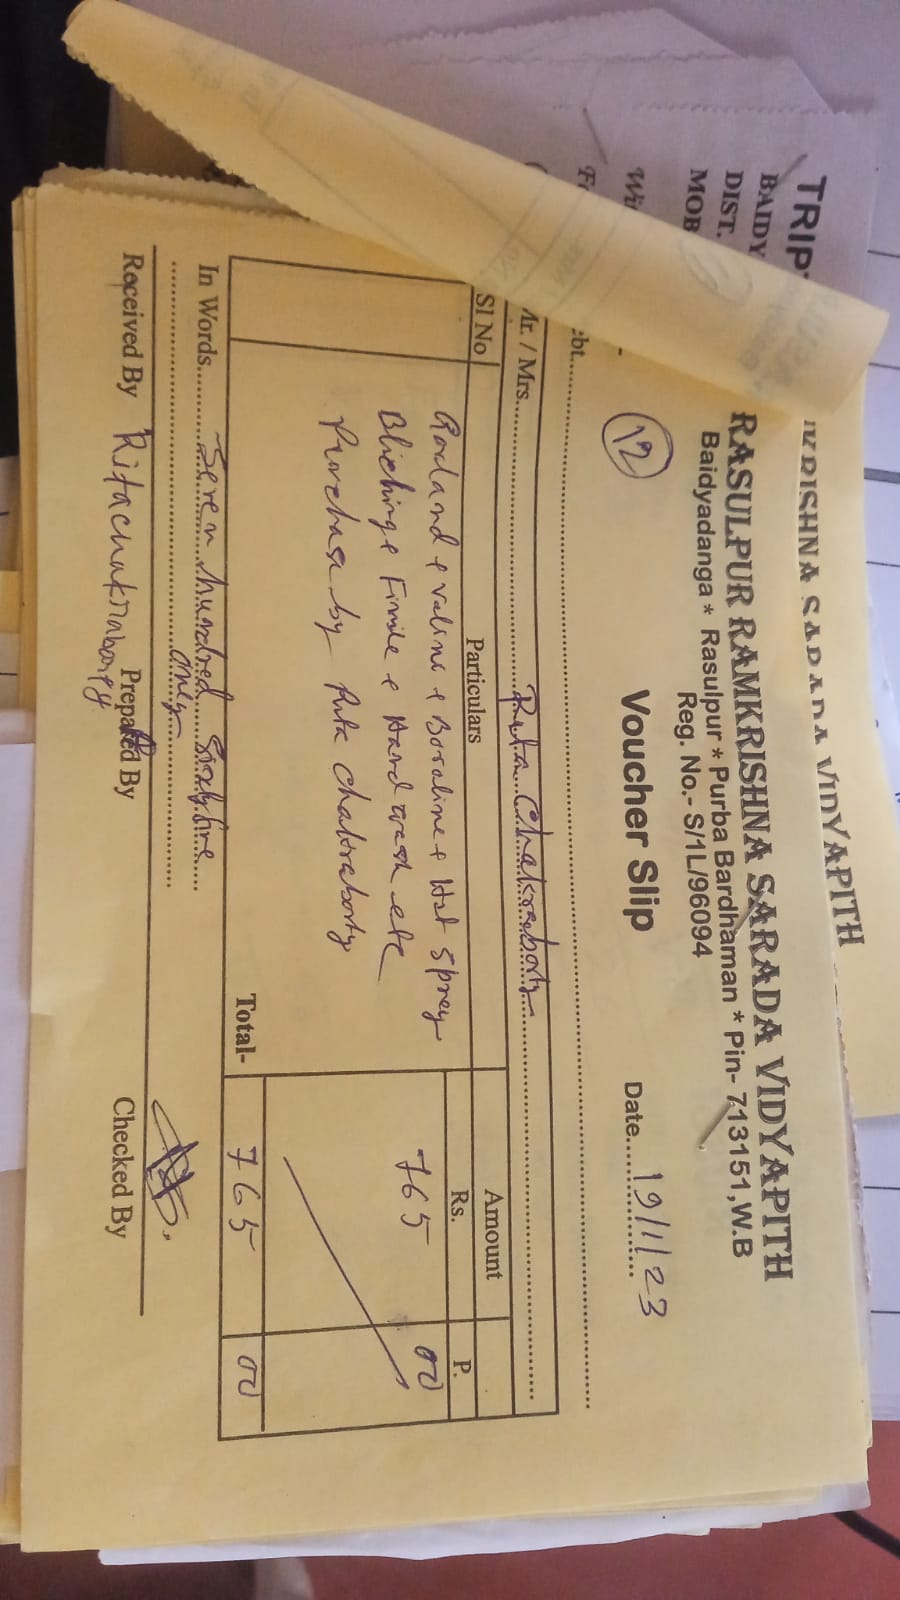 TRIP
BAIDY
DIST.
MOB
KRISHNA SARADA VIDYAPITH
RASULPUR RAMKRISHNA SARADA VIDYAPITH
Baidyadanga * Rasulpur * Purba Bardhaman * Pin- 713151,W.B
Reg. No.- S/1L/96094
12 Voucher Slip Date 19/1/23
ebt.
Mr. / Mrs. Rita Chakraborty
Sl No Particulars Amount
Rs. P.
Godand + valini + Boroline + Hat sprey 765 00
Bliching + Finile + Hand wash etc
Purchase by Rita Chakraborty
Total- 765 00
In Words Seven hundred sixty five
only
Received By Rita chakraborty Prepared By Checked By